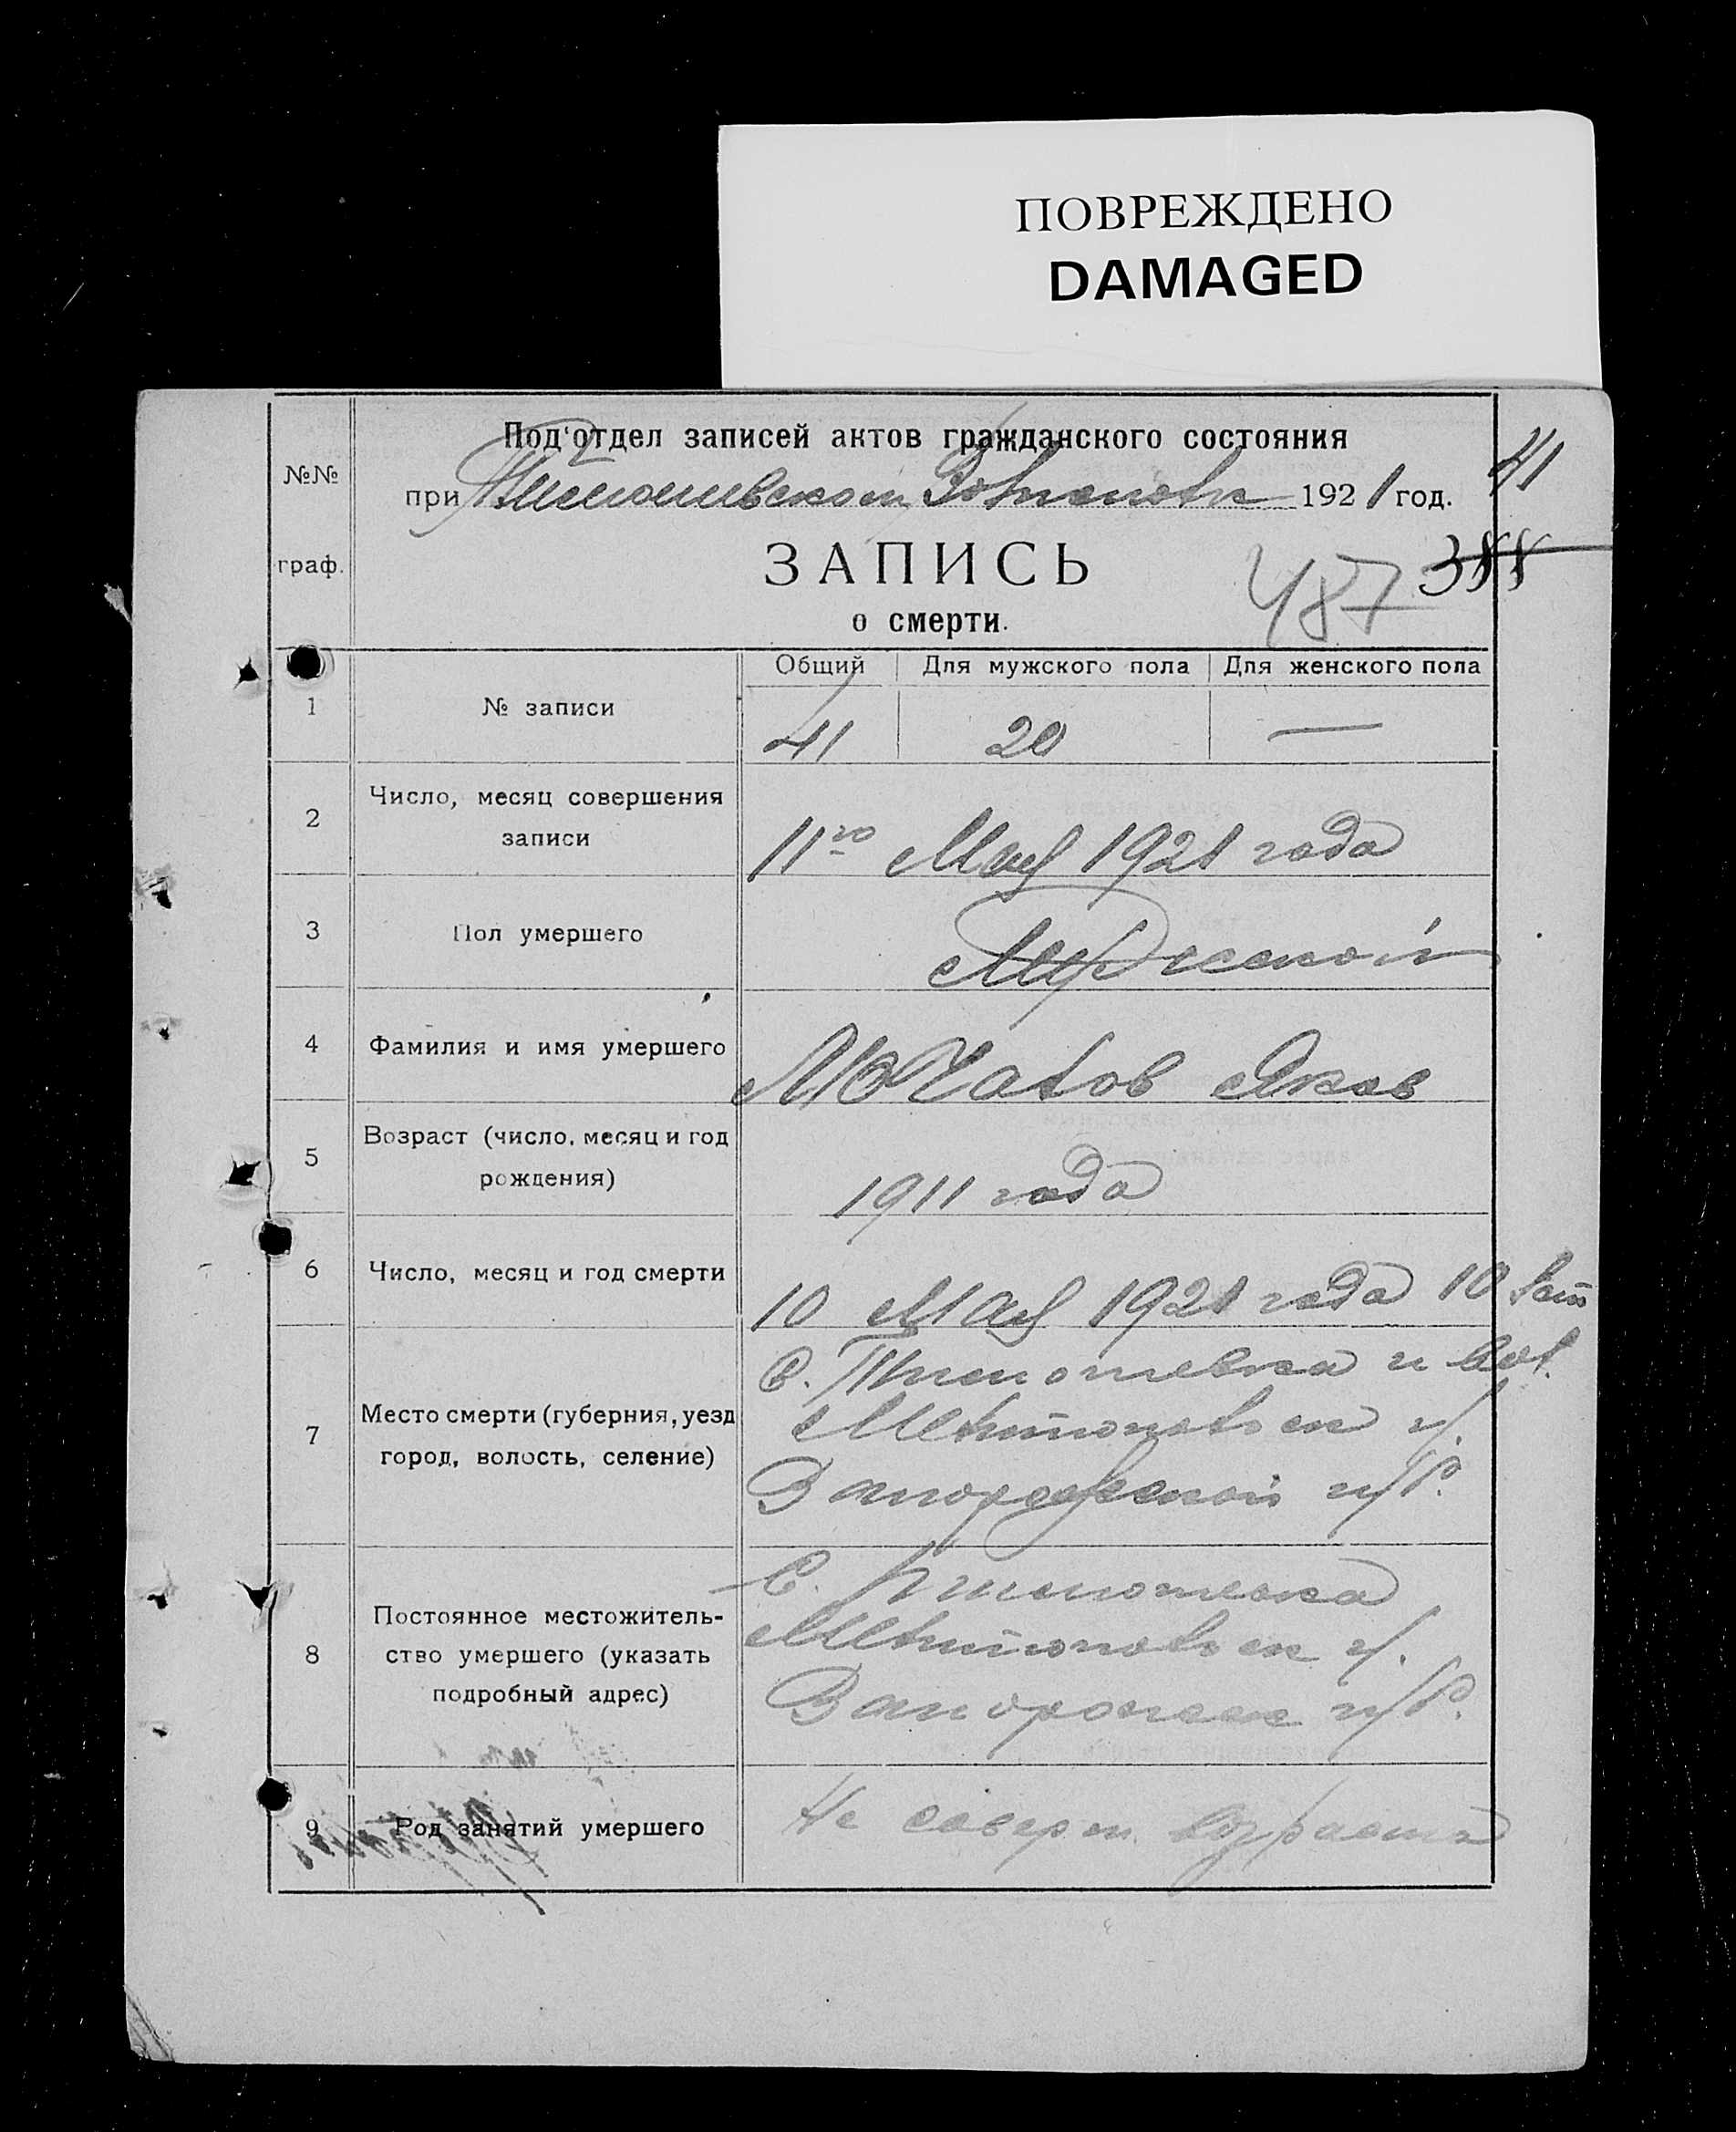 ПОВРЕЖДЕНО
DAMAGED
Под'отдел записей актов гражданского состояния
№№
при 1921 год.
41
граф.
ЗАПИСЬ
487 388
о смерти.
Общий Для мужского пола Для женского пола
1 № записи 41 20 —
2 Число, месяц совершения
записи
11го Мая 1921 года
3 Пол умершего Мужской
4 Фамилия и имя умершего Мочалов Яков
5 Возраст (число, месяц и год
рождения)
1911 года
6 Число, месяц и год смерти
10 Мая 1921 года 10
7 Место смерти (губерния, уезд
город, волость, селение)
С. и вол.
Мелитопольск у.
Запорожской губ.
8 Постоянное местожитель-
ство умершего (указать
подробный адрес)
С.
Мелитопольск у.
Запорожск губ.
9 Род занятий умершего
Не соверш. возраста